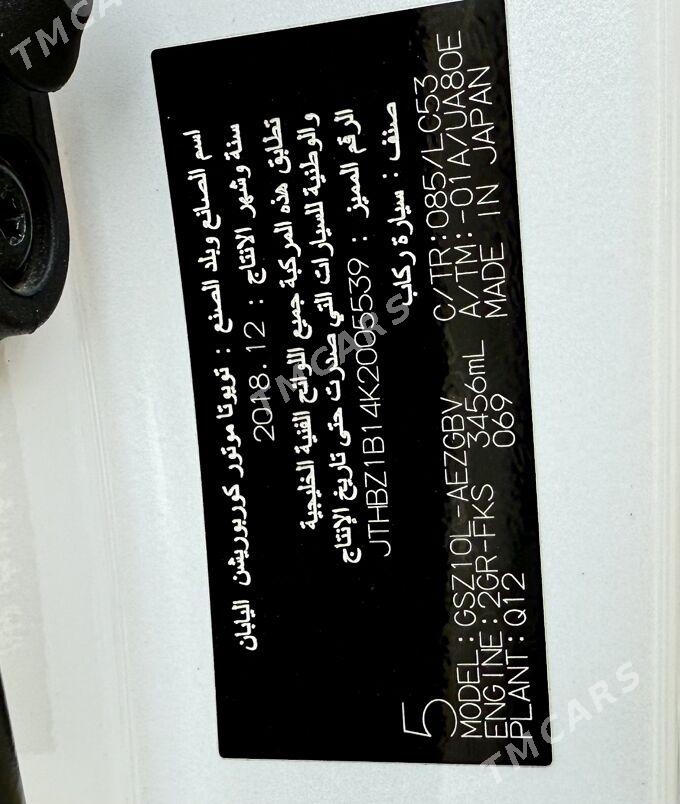 اسم الصانع وبلد الصنع : تويوتا موتور كوربوريشن اليابان
سنة وشهر الانتاج : 2018.12
تطابق هذه المركبة جميع اللوائح الفنية الخليجية
والوطنية للسيارات التي صدرت حتى تاريخ الإنتاج
الرقم المميز : JTHBZ1B14K2005539
صنف : سيارة ركاب
5
MODEL:GSZ10L-AEZGBV C/TR:085/LC53
ENGINE:2GR-FKS 3456mL A/TM:-01A/UA80E
PLANT:Q12 069 MADE IN JAPAN
TMCARS
TMCARS
TMCARS
TMCARS